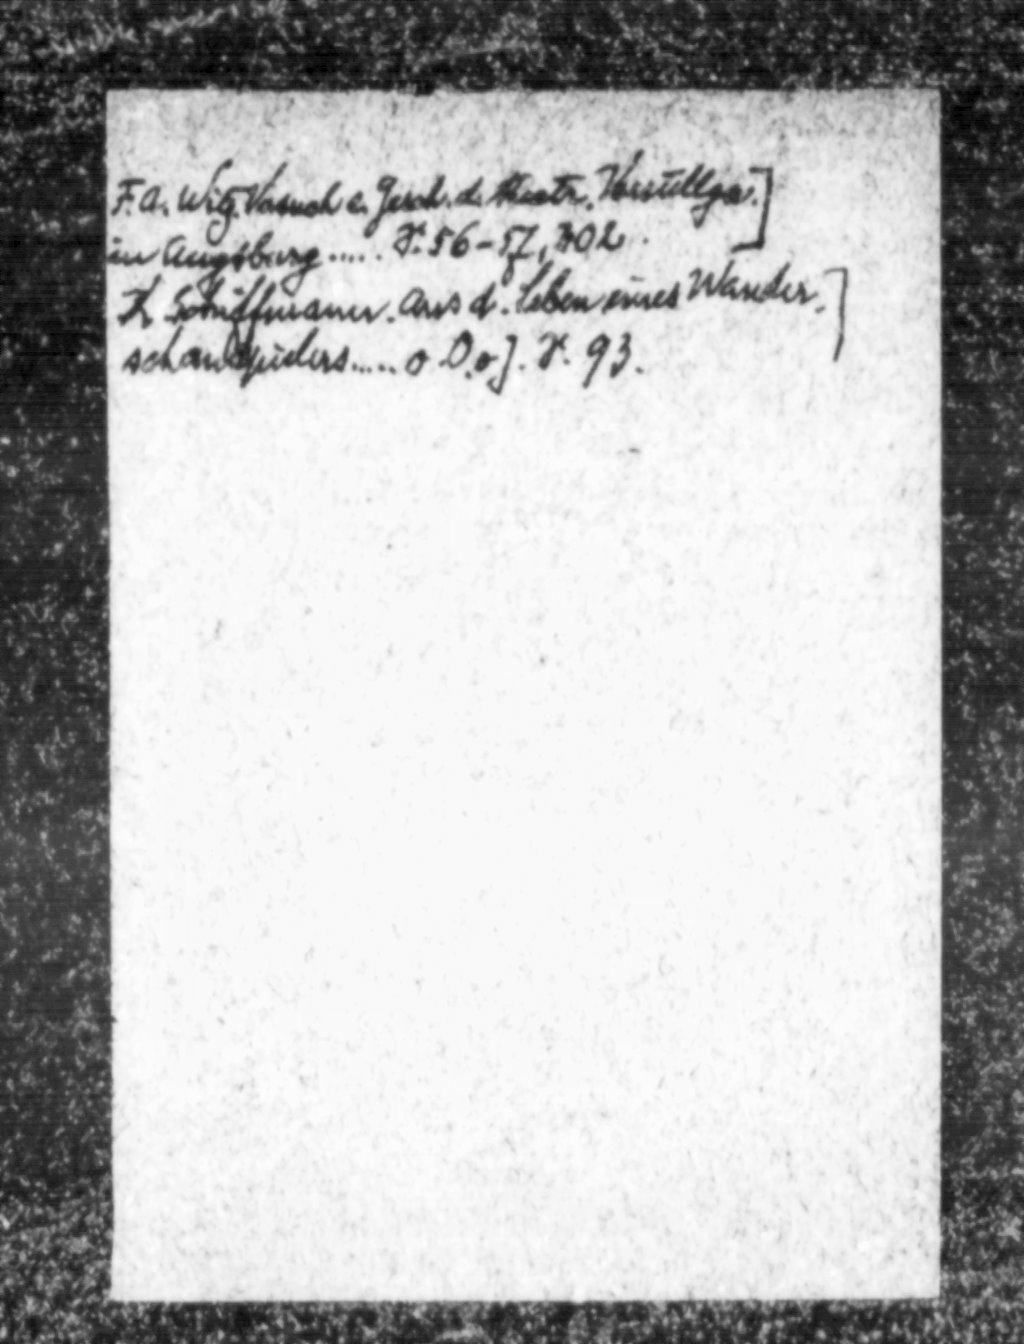 F. A. Witz. Versuch e. Gesch. d. theatr. Vorstellgn.]
in Augsburg ..... S. 56-57, 302.
Schiffmann. Aus d. Leben eines Wander-]
schauspielers..... o. O. o J. S. 93.